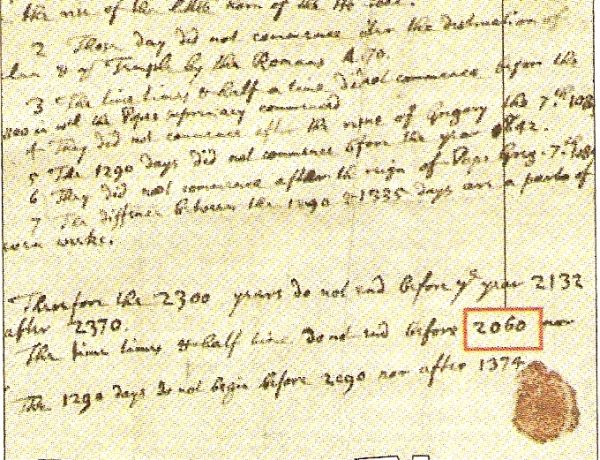 the rise of the little horn of the He Goat.
2 Those day did not commence after the destruction of
& ye Temple by the Romans A. 70.
3 The time times & half a time did not commence before the
800 in wch the Popes supremacy commenced
4 They did not commence after the reigne of Gregory the 7th. 108
5 The 1290 days did not commence before the year 842.
6 They did not commence after the reign of Pope Greg. 7th. 108
7 The diffence between the 1290 & 1335 days are a parts of
weeks.
Therefore the 2300 years do not end before ye year 2132
after 2370.
The time times & half time do not end before 2060 nor
The 1290 days do not begin before 2090 nor after 1374